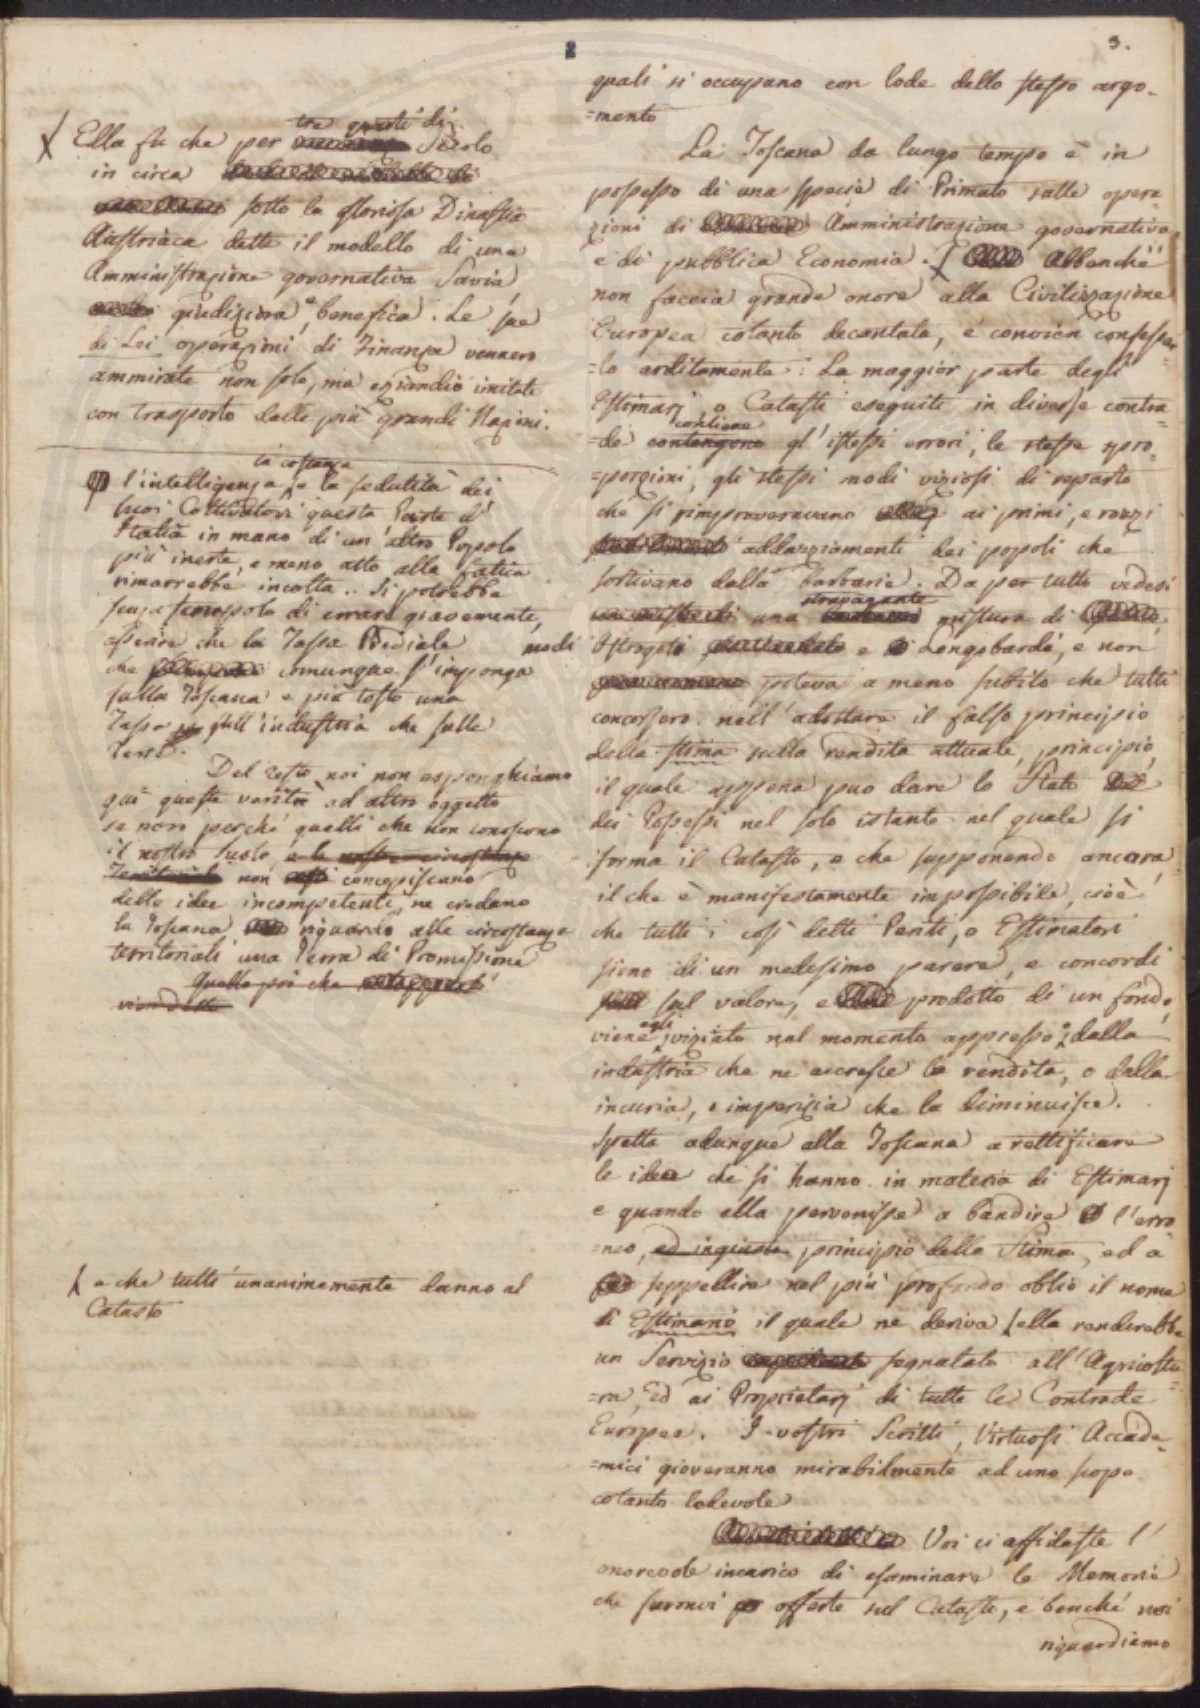 3.
quali si occupano con lode dello stesso argo-
=mento
La Toscana da lungo tempo è in
possesso di una specie di Primato sulle opera
zioni di Amministrazione governativa
e di pubblica Economia. Abbenchè
non faccia grande onore alla Civilizzazione
Europea cotanto decantata, è convien confessar
=lo arditamente: La maggior parte degli
Estimarj, o Catasti eseguiti in diverse contra
contiene
=de contengono gl'istessi errori, le stesse spro,
=porzioni, gli stessi modi viziosi di reparto
che si rimproveravano ai primi, e rozzi
addaziamenti dei popoli che
sortivano dalla barbarie. Da per tutto vedesi
stravagante
una mistura di
Ostrogoto e Longobardo, e non
poteva a meno subito che tutti
concorsero nell'adottare il falso principio
della stima sulla rendita attuale, principio,
il quale appena può dare lo Stato
dei Possessi nel solo istante nel quale si
forma il Catasto, e che supponendo ancora,
il che è manifestamente impossibile, cioè
che tutti i così detti Periti, o Estimatori
sieno di un medesimo parere, e concordi
sul valore, e prodotto di un fondo,
egli
viene viziato nel momento appresso, dalla
industria che ne accresce la rendita, o dalla
incuria, o imperizia che la diminuisce.
Spetta adunque alla Toscana a rettificare
le idee che si hanno in materia di Estimarj
e quando ella pervenisse a bandire l'erro
=neo, ed ingiusto principio della Stima, ed a
seppellire nel più profondo oblio il nome
di Estimario il quale ne deriva ella renderebbe
un Servizio segnalato all'Agricoltu
=ra, Ed ai Proprietarj di tutte le Contrade
Europee. I vostri Scritti, Virtuosi Accade-
=mici gioveranno mirabilmente ad uno scopo
cotanto lodevole
Voi ci affidaste l'
onorevole incarico di esaminare le Memorie
che furonvi offerte sul Catasto, e benché noi
riguardiamo
tre quarti di
X Ella fu che per Secolo
in circa
sotto la gloriosa Dinastia
Austriaca dette il modello di una
Amministrazione governativa Savia
giudiziosa, e benefica. Le sue
di Lei operazioni di Finanza vennero
ammirate non solo, ma eziandio imitate
con trasporto dalle più grandi Nazioni.
la costanza
l'intelligenza e la sedulità dei
suoi Coltivatori questa Parte d'
Italia in mano di un'altro Popolo
più inerte, e meno atto alla fatica
rimarrebbe incolta. Si potrebbe
senza scrupolo di errare gravemente,
asserire che la Tassa Prediale
modi
che comunque s'imponga
sulla Toscana è più tosto una
Tassa sull'industria che sulle
Terre.
Del resto noi non esponghiamo
quì queste verità ad altro oggetto
se non perché quelli che non conoscono
il nostro Suolo, e le nostre circostanze
Territoriali non concepiscano
delle idee incompetenti, ne credano
la Toscana riguardo alle circostanze
territoriali una Terra di Promissione
Quello poi che
e che tutti unanimemente danno al
Catasto